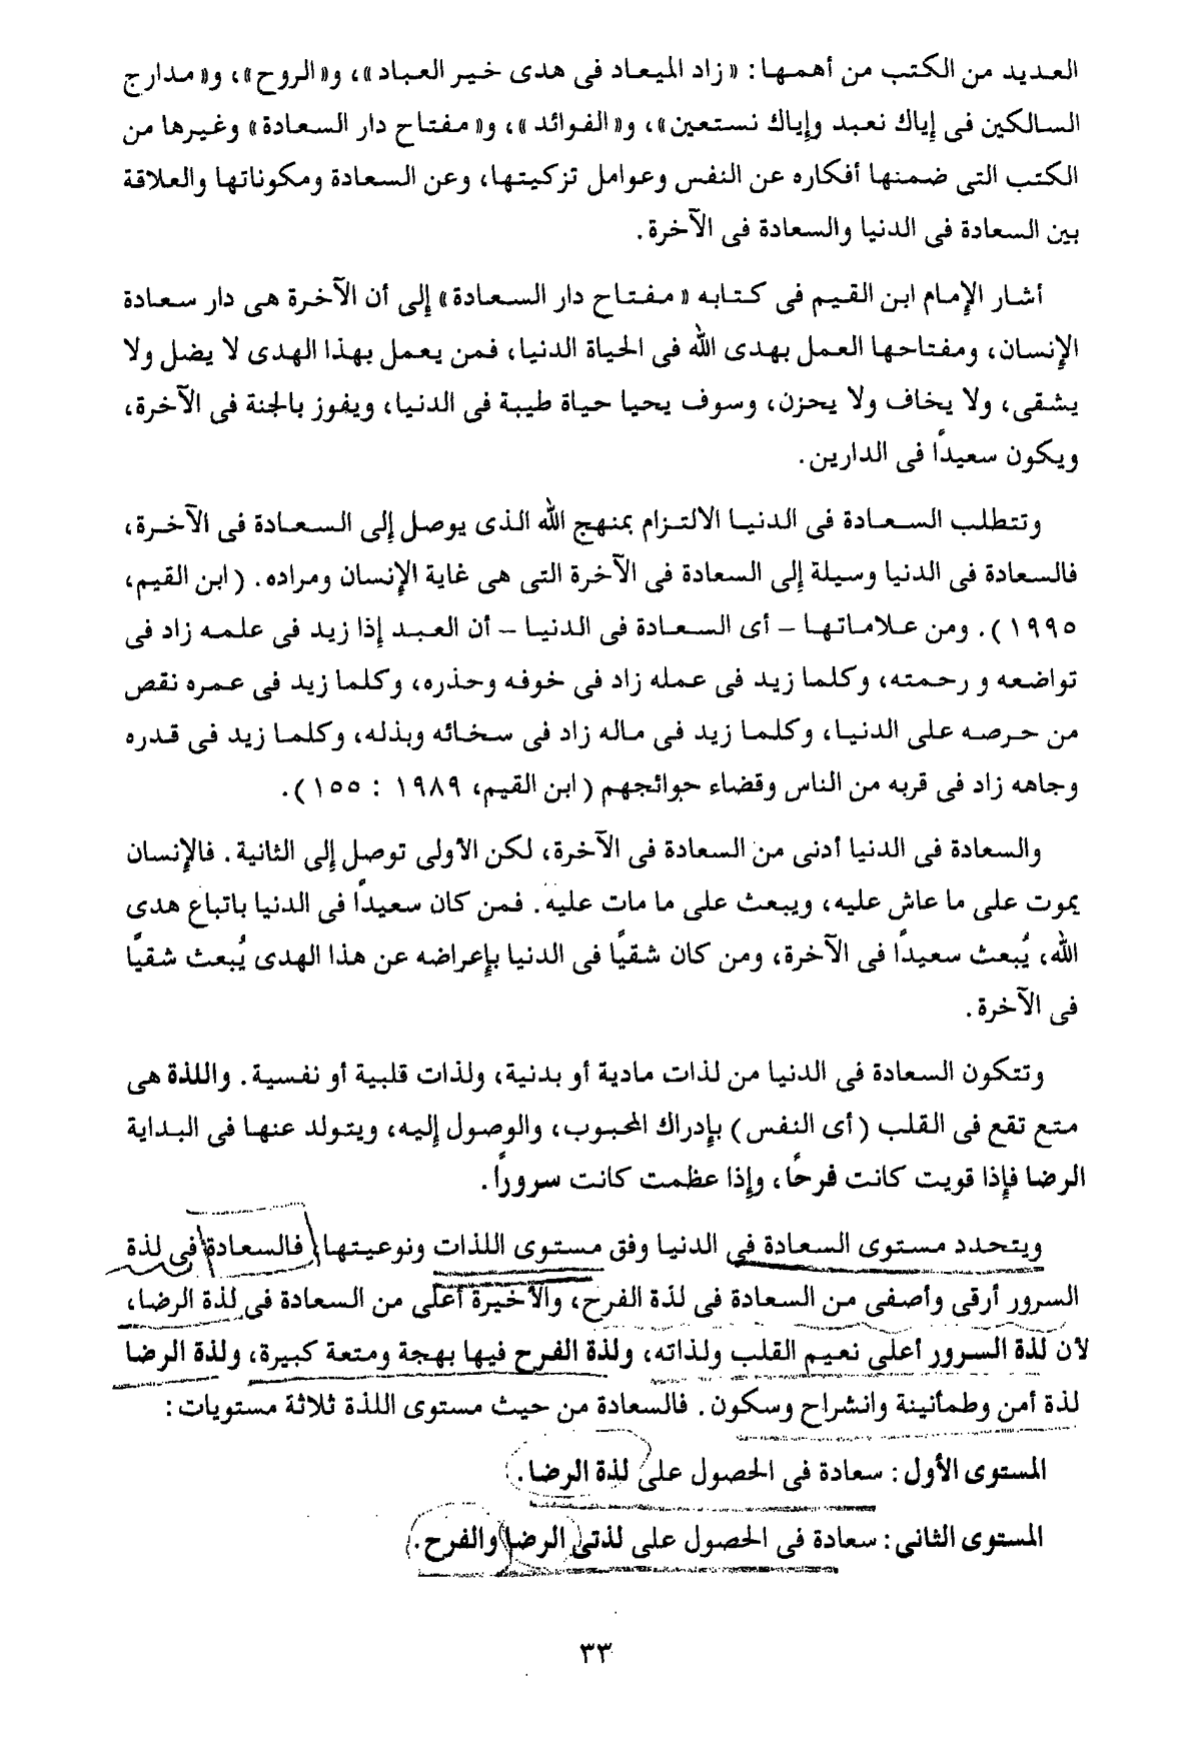 العديد من الكتب من أهمها: «زاد الميعاد فى هدى خير العباد»، و«الروح»، و«مدارج
السالكين فى إياك نعبد وإياك نستعين»، و«الفوائد»، و«مفتاح دار السعادة» وغيرها من
الكتب التى ضمنها أفكاره عن النفس وعوامل تزكيتها، وعن السعادة ومكوناتها والعلاقة
بين السعادة فى الدنيا والسعادة فى الآخرة.
أشار الإمام ابن القيم فى كتابه «مفتاح دار السعادة» إلى أن الآخرة هى دار سعادة
الإنسان، ومفتاحها العمل بهدى الله فى الحياة الدنيا، فمن يعمل بهذا الهدى لا يضل ولا
يشقى، ولا يخاف ولا يحزن، وسوف يحيا حياة طيبة فى الدنيا، ويفوز بالجنة فى الآخرة،
ويكون سعيدًا فى الدارين.
وتتطلب السعادة فى الدنيا الالتزام بمنهج الله الذى يوصل إلى السعادة فى الآخرة،
فالسعادة فى الدنيا وسيلة إلى السعادة فى الآخرة التى هى غاية الإنسان ومراده. (ابن القيم،
١٩٩٥). ومن علاماتها – أى السعادة فى الدنيا – أن العبد إذا زيد فى علمه زاد فى
تواضعه و رحمته، وكلما زيد فى عمله زاد فى خوفه وحذره، وكلما زيد فى عمره نقص
من حرصه على الدنيا، وكلما زيد فى ماله زاد فى سخائه وبذله، وكلما زيد فى قدره
وجاهه زاد فى قربه من الناس وقضاء حوائجهم (ابن القيم، ١٩٨٩ : ١٥٥).
والسعادة فى الدنيا أدنى من السعادة فى الآخرة، لكن الأولى توصل إلى الثانية. فالإنسان
يموت على ما عاش عليه، ويبعث على ما مات عليه. فمن كان سعيدًا فى الدنيا باتباع هدى
الله، يُبعث سعيدًا فى الآخرة، ومن كان شقيًا فى الدنيا بإعراضه عن هذا الهدى يُبعث شقيًا
فى الآخرة.
وتتكون السعادة فى الدنيا من لذات مادية أو بدنية، ولذات قلبية أو نفسية. واللذة هى
متع تقع فى القلب (أى النفس) بإدراك المحبوب، والوصول إليه، ويتولد عنها فى البداية
الرضا فإذا قويت كانت فرحًا، وإذا عظمت كانت سرورًا.
ويتحدد مستوى السعادة فى الدنيا وفق مستوى اللذات ونوعيتها فالسعادة فى لذة
السرور أرقى وأصفى من السعادة فى لذة الفرح، والأخيرة أعلى من السعادة فى لذة الرضا،
لأن لذة السرور أعلى نعيم القلب ولذاته، ولذة الفرح فيها بهجة ومتعة كبيرة، ولذة الرضا
لذة أمن وطمأنينة وانشراح وسكون. فالسعادة من حيث مستوى اللذة ثلاثة مستويات:
المستوى الأول: سعادة فى الحصول على لذة الرضا.
المستوى الثانى: سعادة فى الحصول على لذتى الرضا والفرح.
٣٣